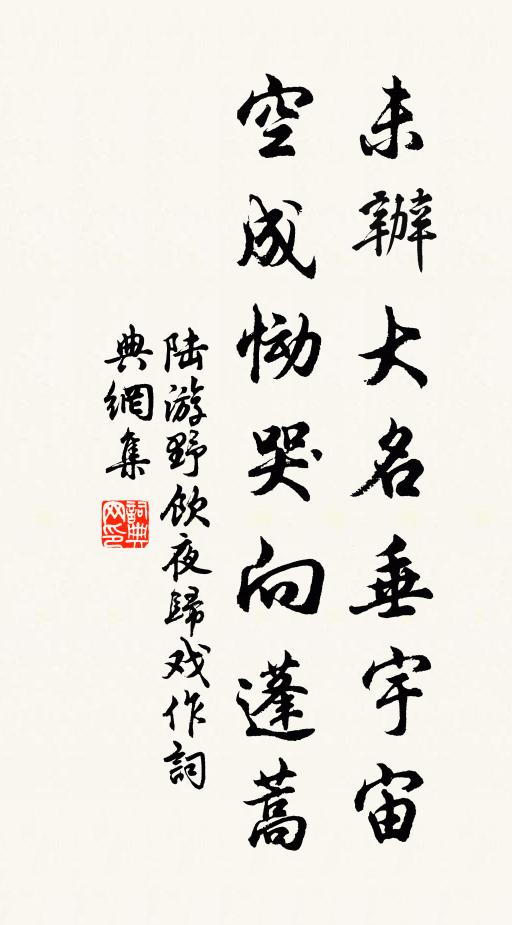 未辦大名垂宇宙
空成慟哭向蓬蒿
陆游野飲夜歸戏作詞
典網集
詞典
网印